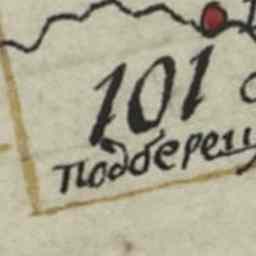 101
Подберец